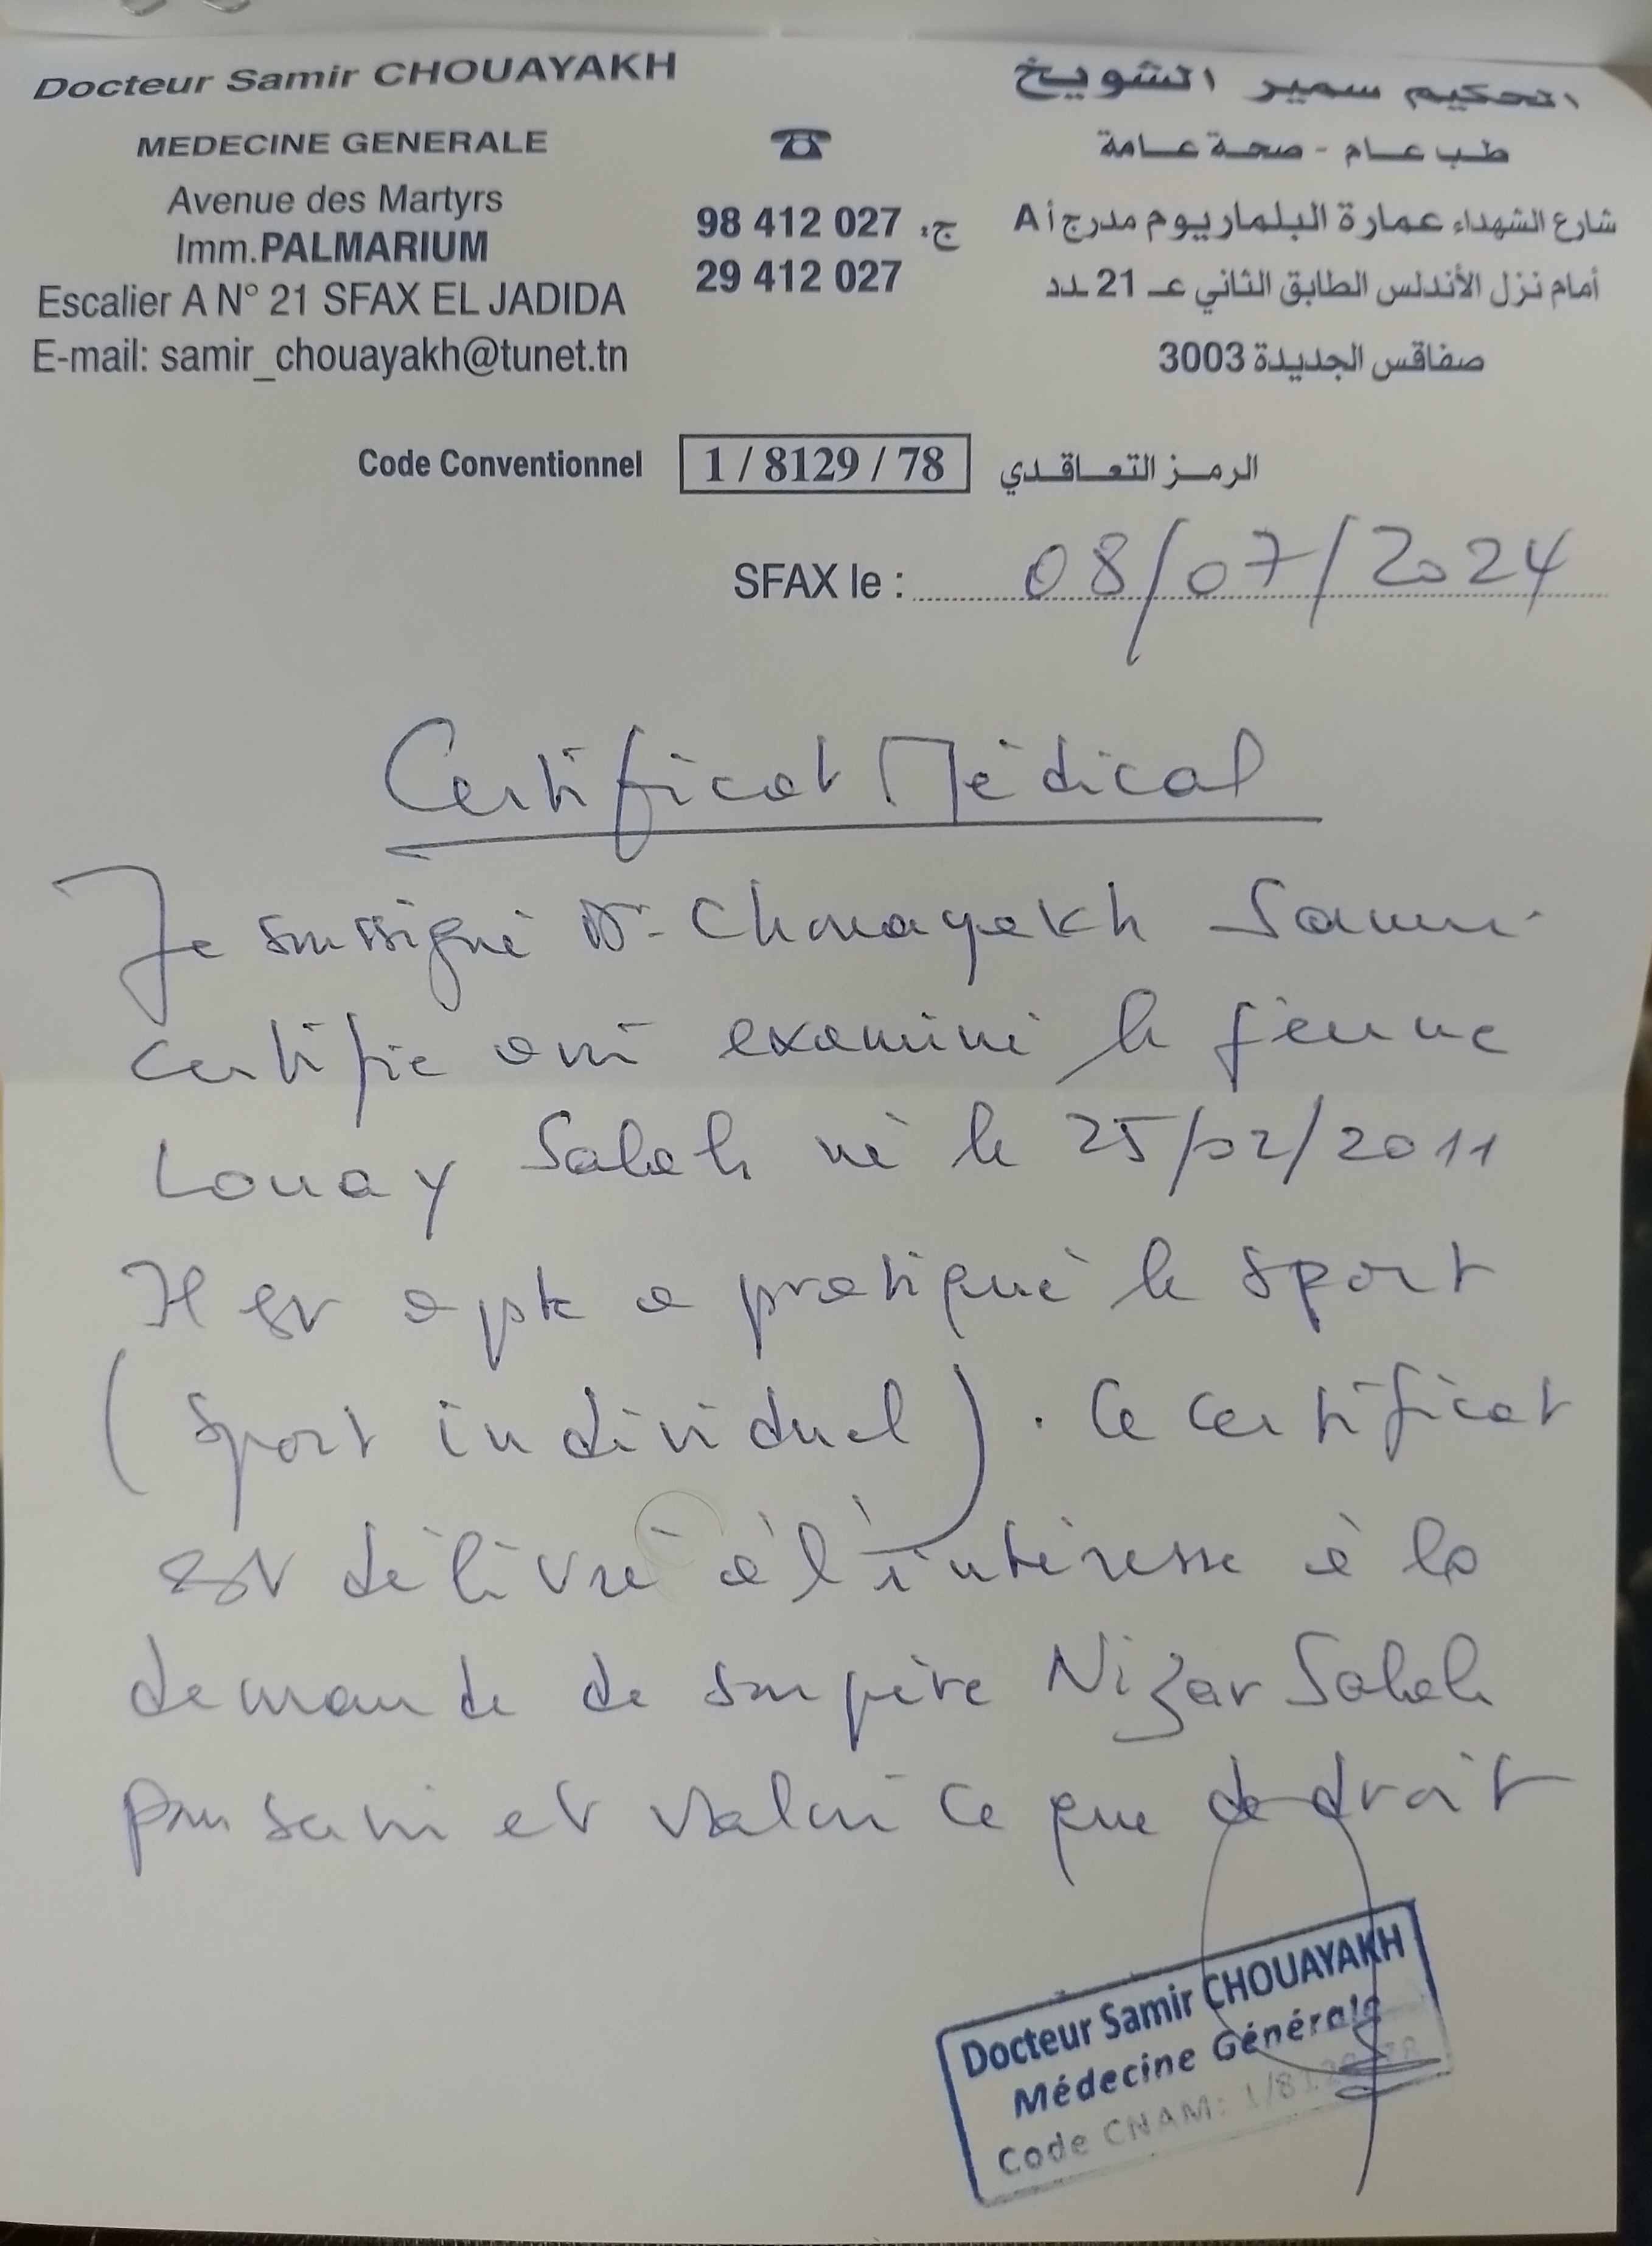 Docteur Samir CHOUAYAKH
MEDECINE GENERALE
Avenue des Martyrs
Imm.PALMARIUM
Escalier A N° 21 SFAX EL JADIDA
E-mail: samir_chouayakh@tunet.tn
☎
98 412 027 ج:
29 412 027
الحكيم سمير الشويخ
طب عام - صحة عامة
شارع الشهداء عمارة البلماريوم مدرج أ A
أمام نزل الأندلس الطابق الثاني عـ 21 ـدد
صفاقس الجديدة 3003
Code Conventionnel 1 / 8129 / 78 الرمز التعاقدي
SFAX le : 08/07/2024
Certificat Médical
Je soussigné Dr Chouayakh Samir
certifie avoir examiné le jeune
Louay Salah né le 25/02/2011
Il est apte a pratiqué le sport
(sport individuel). Ce certificat
est délivré à l'intéressé à la
demande de son père Nizar Salah
pour servir et valoir ce que de droit
Docteur Samir CHOUAYAKH
Médecine Générale
Code CNAM: 1/8129/78